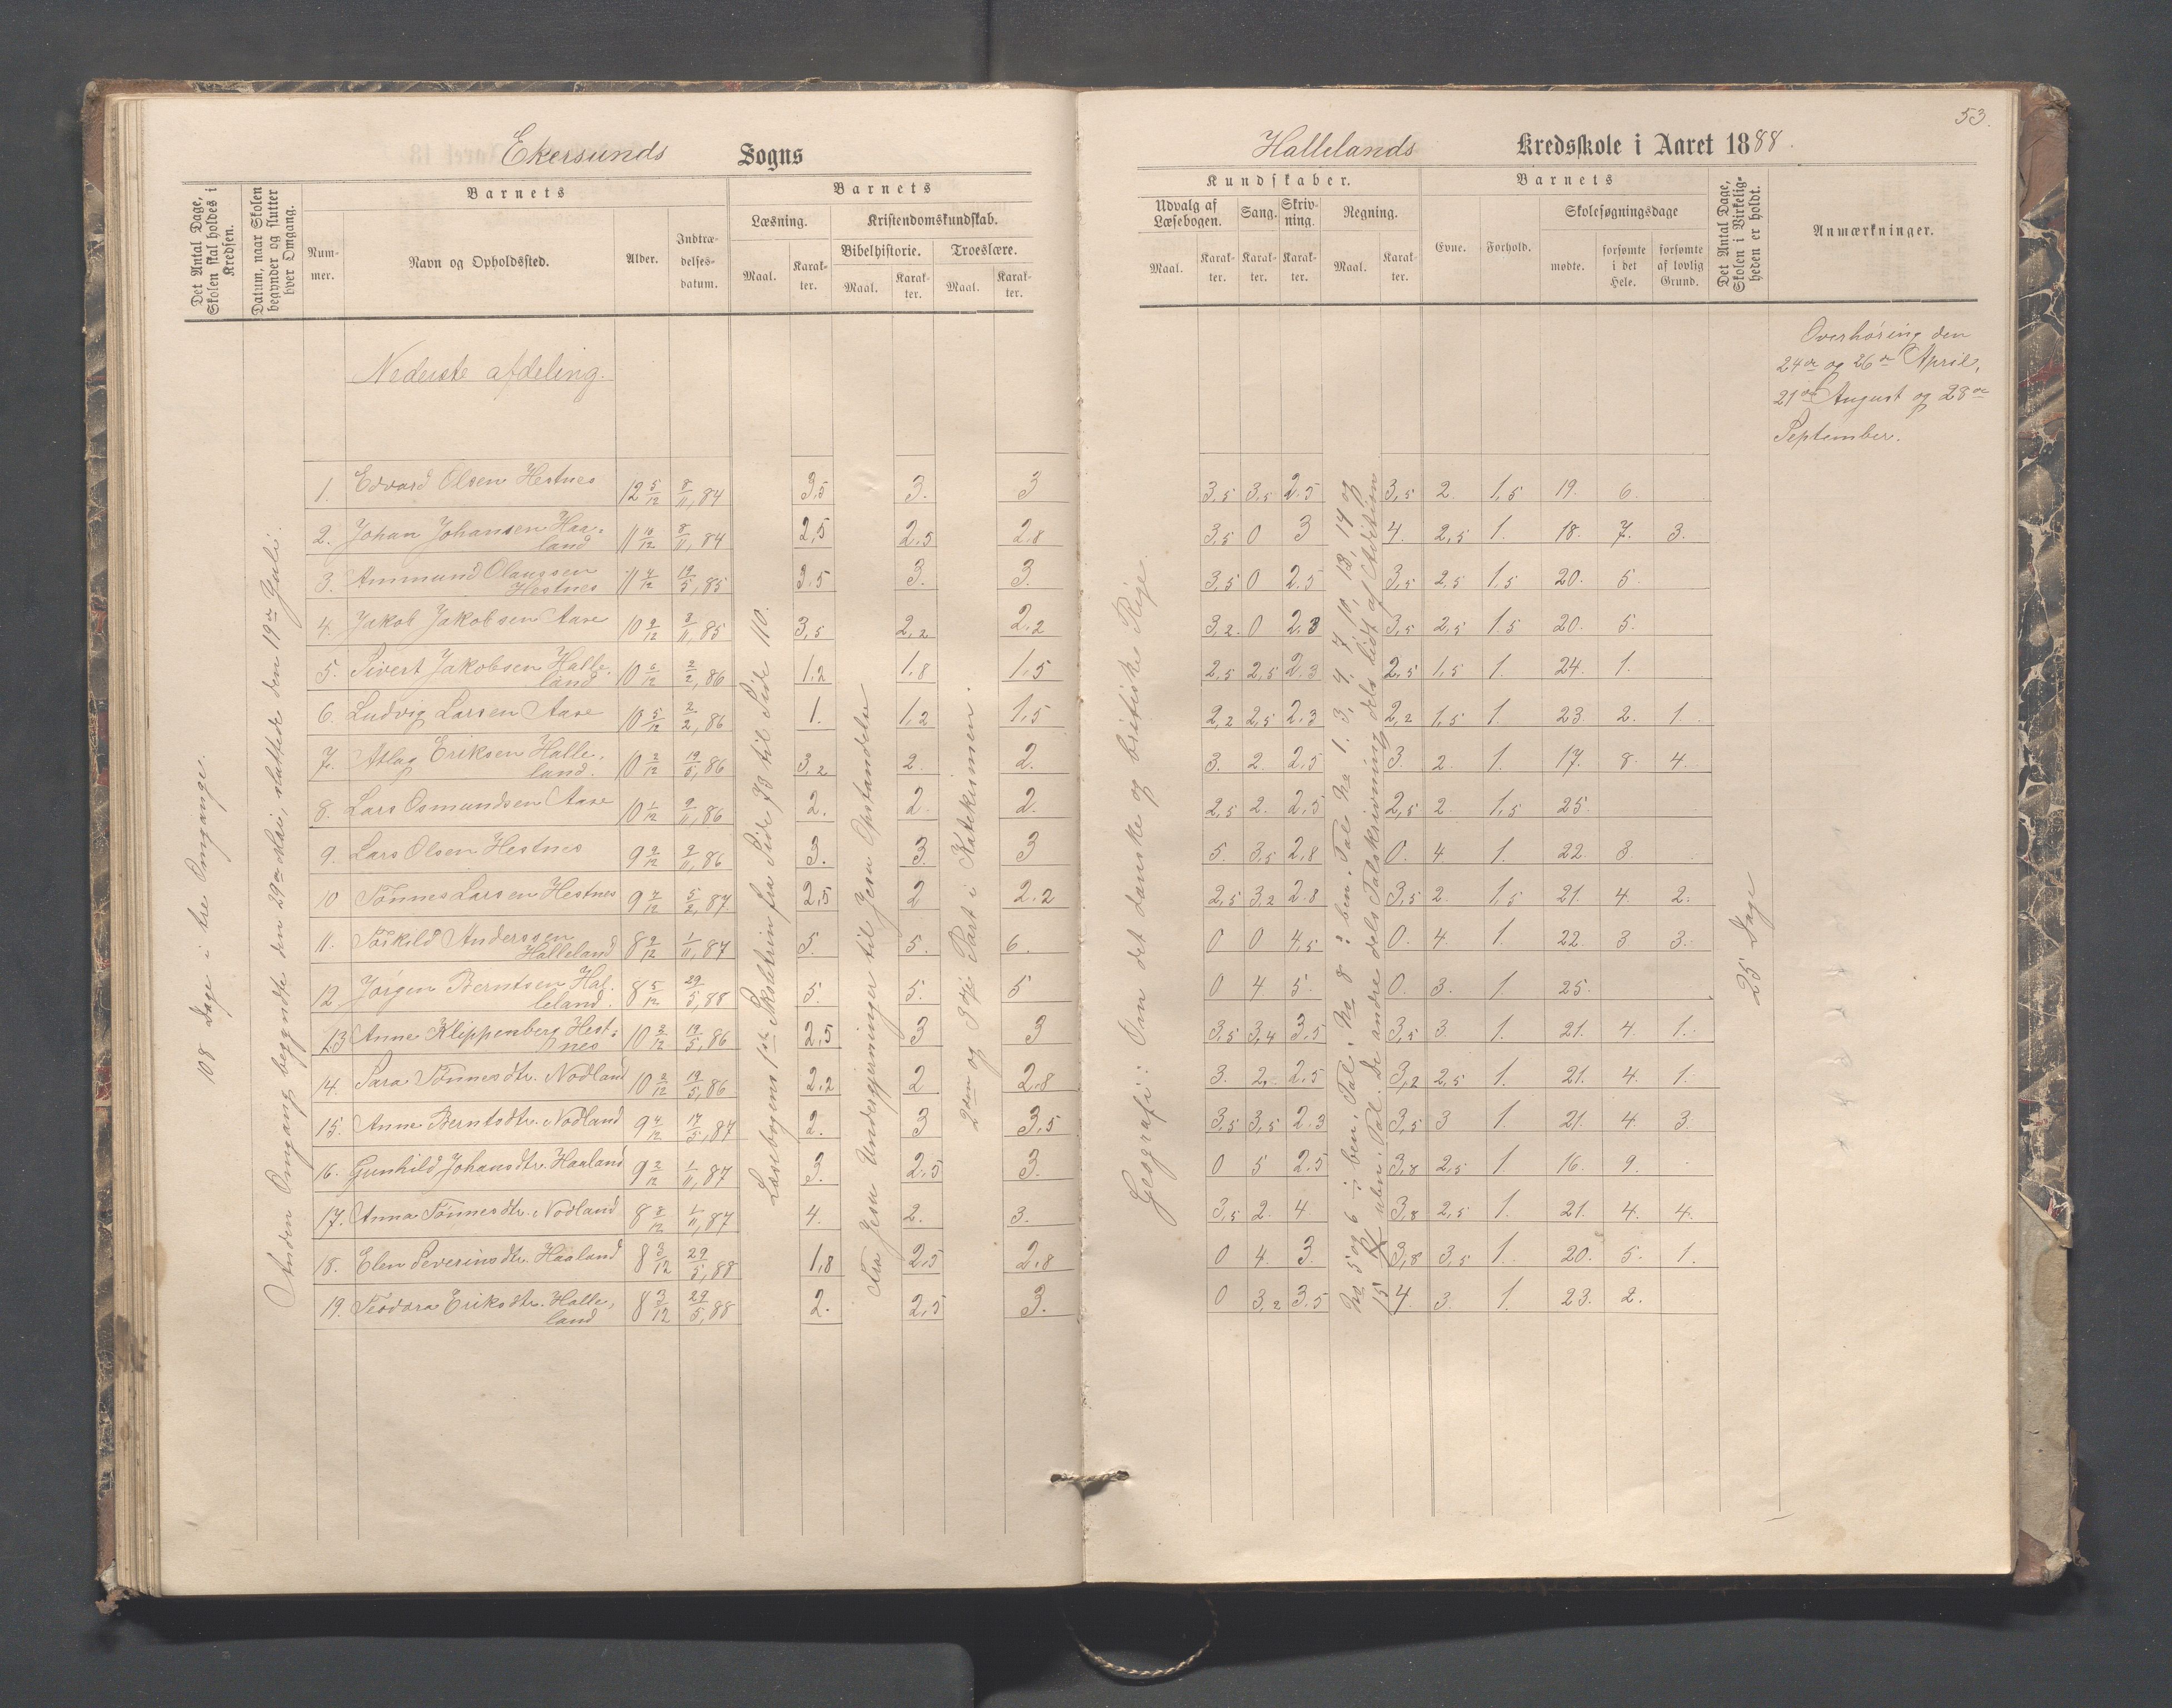 53.
Ekersunds Sogns
Hallelands Kredsskole i Aaret 1888.
Det Antal Dage, Skolen skal holdes i Kredsen.
Datum, naar Skolen begynder og slutter hver Omgang.
Barnets
Num-
mer.
Navn og Opholdssted.
Alder.
Indtræ-
delses-
datum.
Barnets
Læsning.
Kristendomskundskab.
Bibelhistorie.
Troeslære.
Maal.
Karak-
ter.
Maal.
Karak-
ter.
Maal.
Karak-
ter.
Kundskaber.
Udvalg af
Læsebogen.
Sang.
Skriv-
ning.
Regning.
Maal.
Karak-
ter.
Karak-
ter.
Karak-
ter.
Maal.
Karak-
ter.
Barnets
Evne.
Forhold.
Skolesøgningsdage
mødte.
forsømte
i det
Hele.
forsømte
af lovlig
Grund.
Det Antal Dage, Skolen i Virkelig-heden er holdt.
Anmærkninger.
Overhøring den
24de og 26de April,
21de August og 28de
September.
Nederste afdeling.
108 Dage i tre Omgange.
Anden Omgang begyndte den 29de Mai, sluttede den 19de Juli.
Læsebogens 1ste Skoletrin fra Side 78 til Side 110.
Fra Jesu Undergjerninger til Jesu Opstandelse
2den og 3dje Part i Katekismen.
Geografi: Om det danske og britiske Rige.
No 5 og 6 i ben. Tal; No 8 i ben. Tal No 1, 3, 4, 7, 10, 12, 14 og
15 uben. Tal. De andre dels Talskrivning dels lidt af Addition
25 Dage
1. Edvard Olsen Hestnes 12 5/12 8/11, 84 3,5 3. 3 3,5 3,5 2.5 3,5 2. 1,5 19. 6.
2. Johan Johansen Haa-
land 11 10/12 8/11, 84 2,5 2,5 2,8 3,5 0 3 4. 2,5 1. 18. 7. 3.
3. Ammund Olaussen
Hestnes 11 4/12 19/5, 85 3,5 3. 3. 3,5 0 2.5 3,5 2,5 1,5 20. 5.
4. Jakob Jakobsen Aase 10 9/12 3/11, 85 3,5 2,2 2,2 3,2. 0 2,3 3,5 2,5 1.5 20. 5.
5. Sivert Jakobsen Halle-
land 10 6/12 2/2, 86 1,2 1,8 1,5 2,5 2,5 2.3 2,5 1,5 1. 24. 1.
6. Ludvig Larsen Aase 10 5/12 2/2, 86 1. 1,2 1,5 2,2 2,5 2,3 2,2 1,5 1. 23. 2. 1.
7. Atlag Eriksen Halle-
land. 10 2/12 19/5, 86 3,2 2. 2. 3. 2. 2,5 3. 2. 1. 17. 8. 4.
8. Lars Osmundsen Aase 10 1/12 2/11, 86 2. 2. 2. 2,5 2. 2,5 2,5 2. 1,5 25.
9. Lars Olsen Hestnes 9 9/12 2/11, 86 3. 3. 3 5. 3,5 2,8 0. 4. 1. 22. 3.
10 Tønnes Larsen Hestnes 9 7/12 5/2, 87 2,5 2 2.2 2,5 3,2 2.8 3,5 2. 1,5 21. 4. 2.
11. Torkild Anderssen
Halleland 8 9/12 1/11, 87 5. 5. 6. 0 0 4,5 0. 4. 1. 22. 3 3.
12 Jørgen Berntsen Hal-
leland. 8 5/12 29/5, 88 5. 5. 5 0 4 5. 0. 3. 1. 25.
13 Anne Klippenberg Hest-
nes 10 3/12 19/5, 86 2,5 3 3 3,5 3,4 3,5 3,5 3. 1. 21. 4. 1.
14. Sara Tønnesdtr. Nodland 10 2/12 19/5, 86 2,2 2 2,8 3. 2. 2,5 3,2 2,5 1. 21. 4. 1.
15. Anne Berntsdtr. Nodland 9 4/12 17/5, 87 2. 3 3,5 3,5 3,5 2.3 3,5 3 1. 21. 4 3.
16. Gunhild Johansdtr. Haaland 9 2/12 1/11, 87 3. 2,5 3. 0 5 2.5 3,8 2,5 1 16. 9.
17. Anna Tønnesdtr. Nodland 8 8/12 1/11, 87 4. 2. 3. 3,5 2. 4 3,8 2,5 1. 21. 4. 4.
18. Elen Severinsdtr. Haaland 8 3/12 29/5, 88 1,8 2,5 2,8 0 4. 3. 3,8 3,5 1. 20. 5. 1.
19. Teodora Eriksdtr. Halle-
land 8 3/12 29/5, 88 2. 2,5 3. 0 3,2 3,5 4. 3. 1. 23. 2.